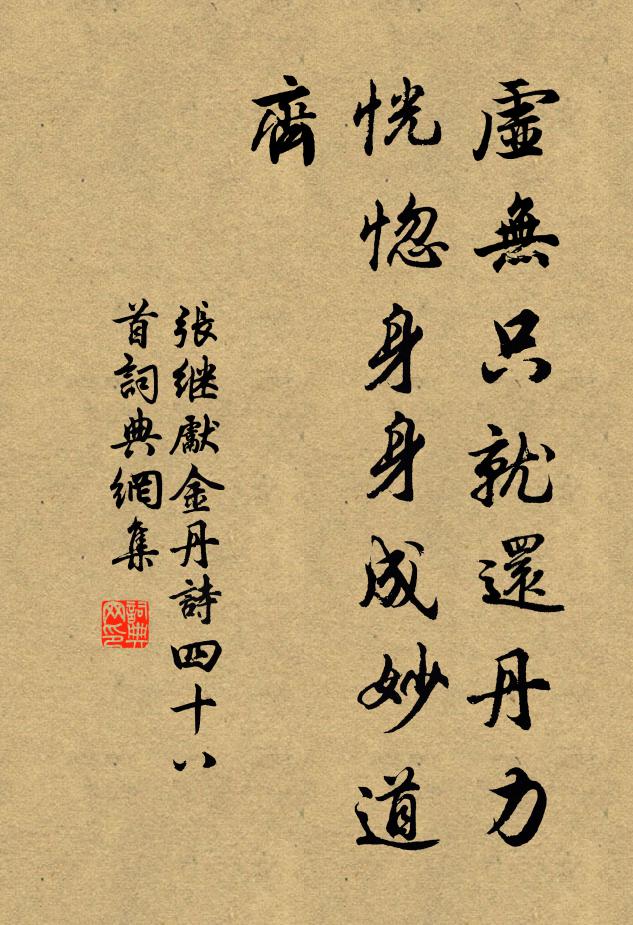 虛無只就還丹力
恍惚身身成妙道
齊
張继獻金丹詩四十八
首詞典網集
詞典
网印